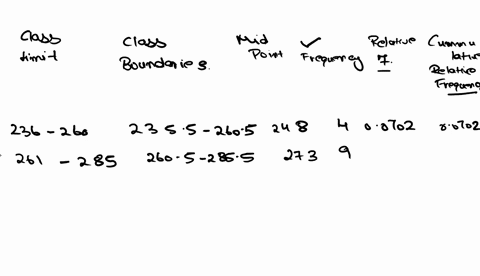 Class limit
Class Boundaries.
Mid Point
✓ Frequency
Relative f.
Cummulative Relative Frequency
236 - 260 235.5 - 260.5 248 4 0.0702 0.0702
261 - 285 260.5 - 285.5 273 9